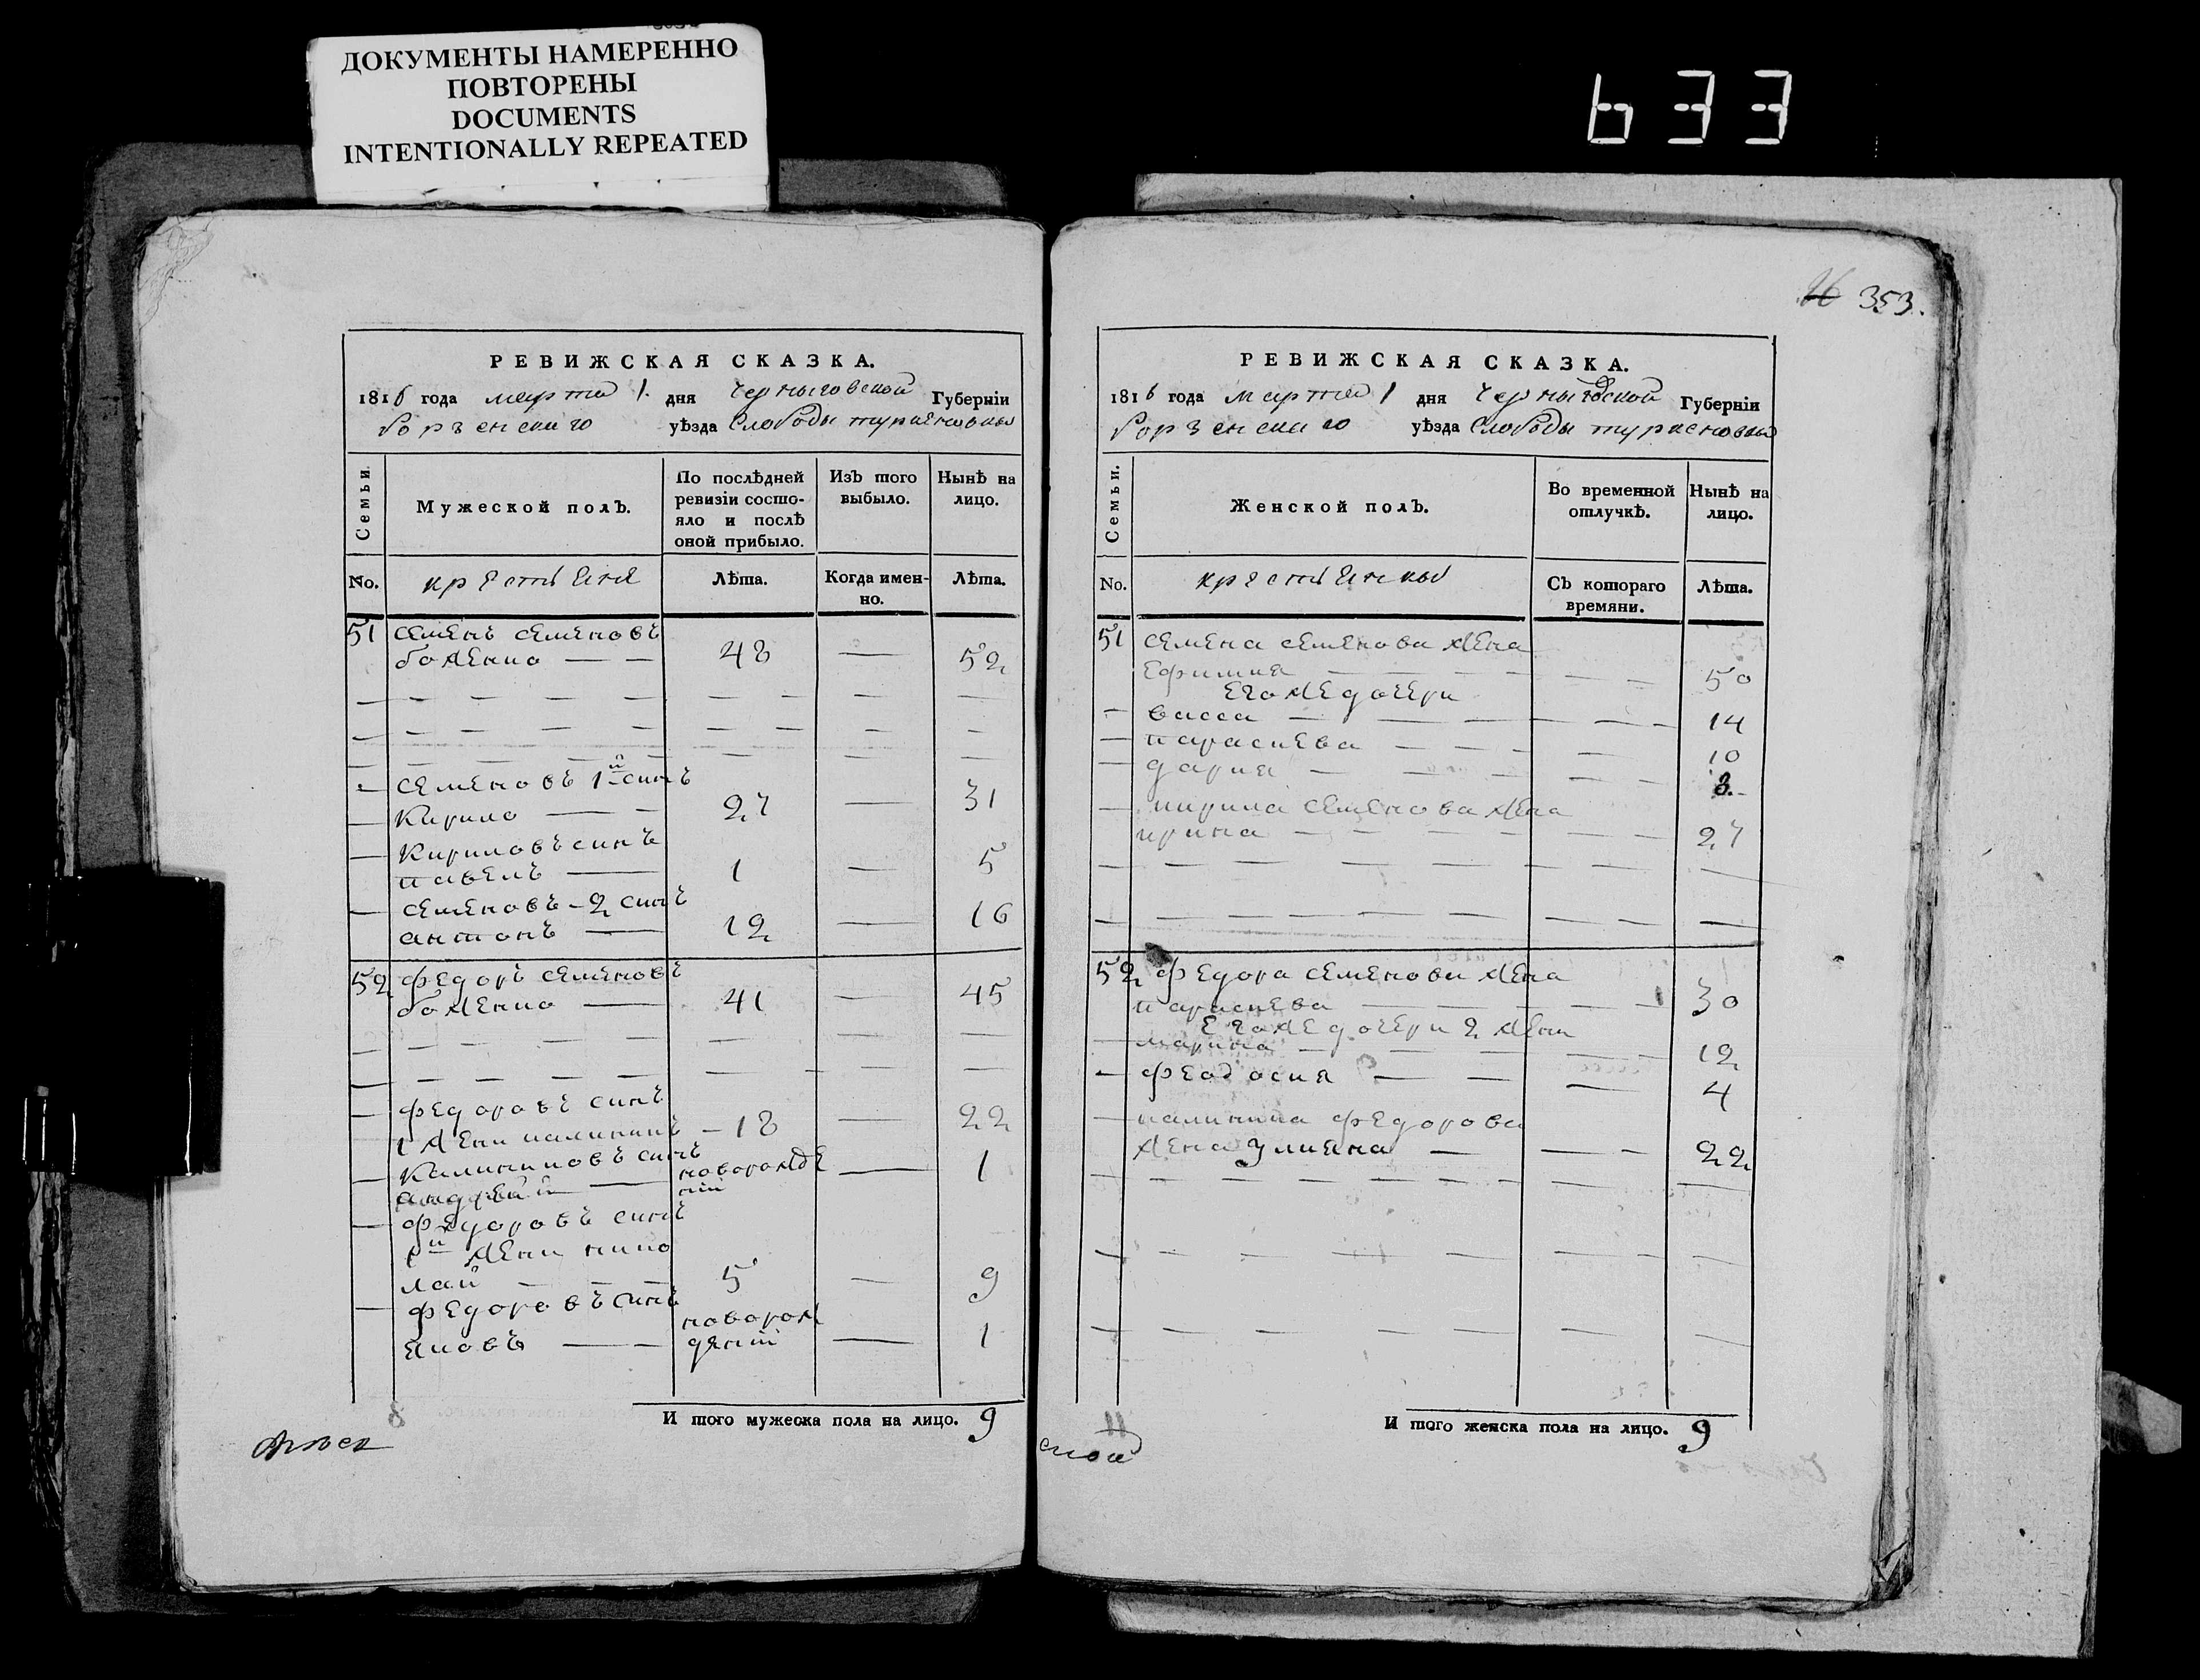 ДОКУМЕНТЫ НАМЕРЕННО
ПОВТОРЕНЫ
DOCUMENTS
INTENTIONALLY REPEATED
633
353.
РЕВИЖСКАЯ СКАЗКА.
1816 года марта 1. дня Черныговской Губерніи
борзенскаго уѣзда Слободы
Семьи.
Мужеской полъ.
По послѣдней
ревизіи состо-
яло и послѣ
оной прибыло.
Изъ того
выбыло.
Нынѣ на
лицо.
No.
крестьяне
Лѣта.
Когда имен-
но.
Лѣта.
51 семенъ семеновъ
боженко — — 48 — 52
семеновъ 1й синъ
Кирило — — 27 — 31
Кириловъ синъ
павелъ — 1 — 5
семеновъ – 2 синъ
антонъ — 12 — 16
52 федоръ семеновъ
боженко — 41 — 45
федоровъ синъ
1 жени калиникъ – 18 — 22
Калиниковъ синъ новорожде
андрей — ній — 1
федоровъ синъ
1й жени нико
лай — — 5 — 9
федоровъ синъ новорож
яковъ — — дяній — 1
И того мужеска пола на лицо. 9
РЕВИЖСКАЯ СКАЗКА.
1816 года марта 1 дня Черныговской Губерніи
борзенскаго уѣзда Слободы
Семьи.
Женской полъ.
Во временной
отлучкѣ.
Нынѣ на
лицо.
No.
крестьянкы
Съ котораго
времяни.
Лѣта.
51 семена семенова жена
Ефимия — — — 50
Его же дочери
васса — — — 14
параскева — — — 10
дария — — — 8.
кирила семенова жена
ирина — — — 27
52 федора семенова жена
параскева — — — 30
Его же дочери 2 жени
марина — — — 12
феодосия — — — 4
калиника федорова
жена улияна — — — 22
И того женска пола на лицо. 9